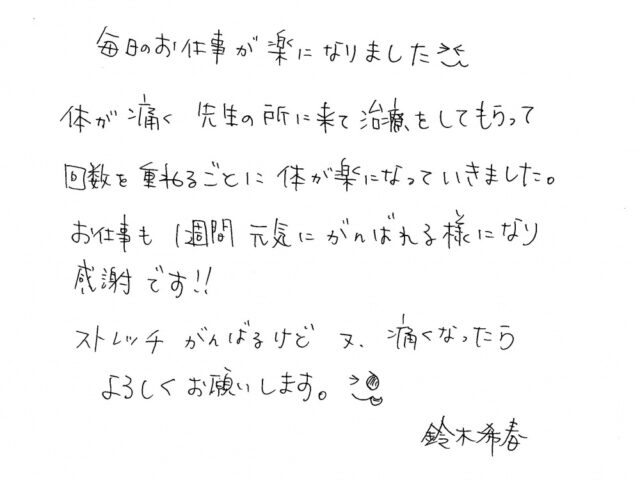 毎日のお仕事が楽になりました
体が痛く 先生の所に来て治療をしてもらって
回数を重ねるごとに体が楽になっていきました。
お仕事も1週間元気にがんばれる様になり
感謝です!!
ストレッチがんばるけど又、痛くなったら
よろしくお願いします。
鈴木希春